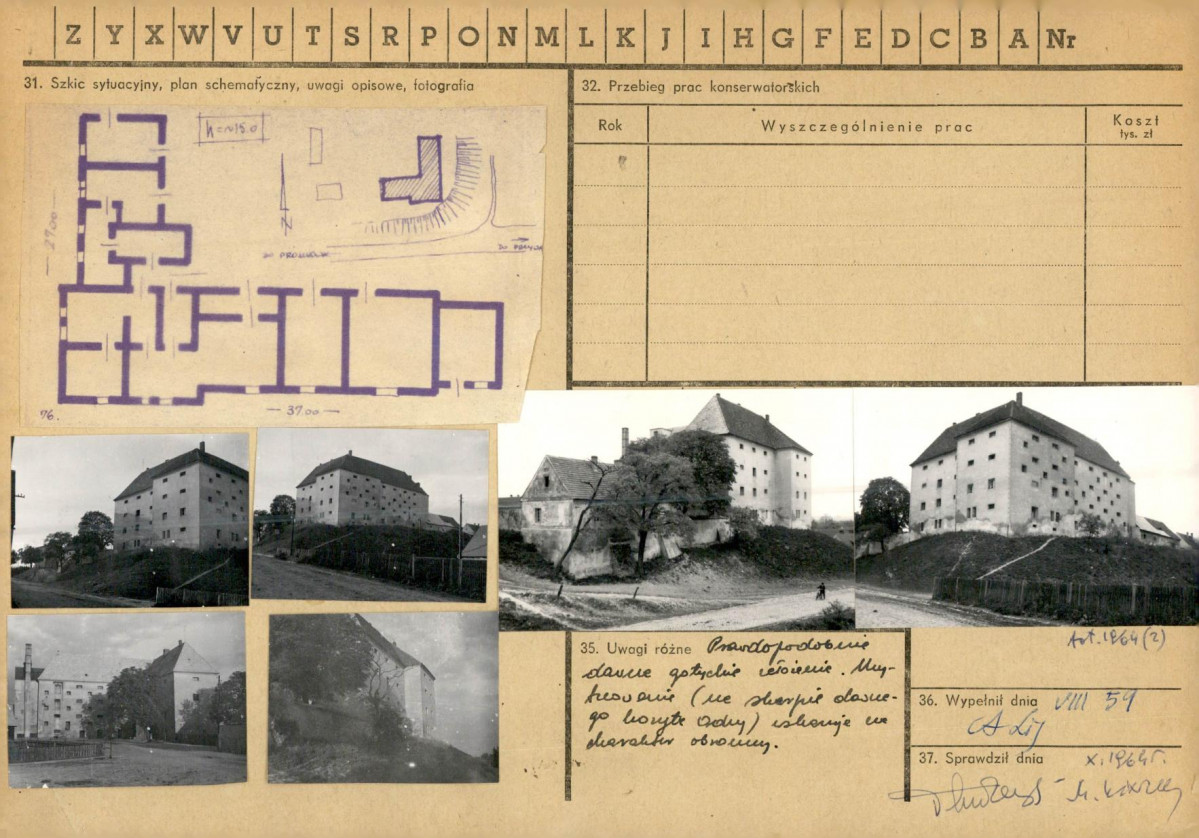 Z Y X W V U T S R P O N M L K J I H G F E D C B A Nr
31. Szkic sytuacyjny, plan schematyczny, uwagi opisowe, fotografia
h=~15.0
N
27.00
37.00
76.
32. Przebieg prac konserwatorskich
Rok
Wyszczególnienie prac
Koszt
tys. zł
35. Uwagi różne Prawdopodobnie
dawne gotyckie
(na skarpie dawne-
go koryta Odry) wskazuje na
charakter obronny.
fot. 1964 (2)
36. Wypełnił dnia VIII 59
37. Sprawdził dnia X. 1964 r.